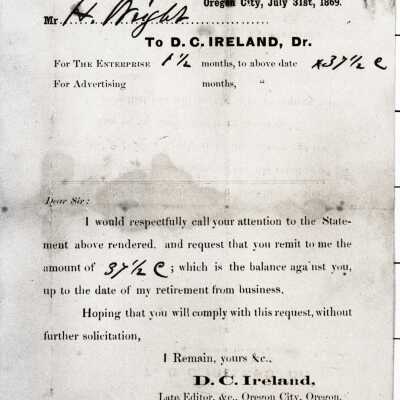 Oregon City, July 31st, 1869.
Mr. H. Wright
To D. C. IRELAND, Dr.
For THE ENTERPRISE 1½ months, to above date 37½ C
For Advertising months, "
Dear Sir:
I would respectfully call your attention to the State-
ment above rendered, and request that you remit to me the
amount of 37½ C; which is the balance against you,
up to the date of my retirement from business.
Hoping that you will comply with this request, without
further solicitation,
I Remain, yours &c.,
D. C. Ireland,
Late Editor, &c., Oregon City, Oregon.